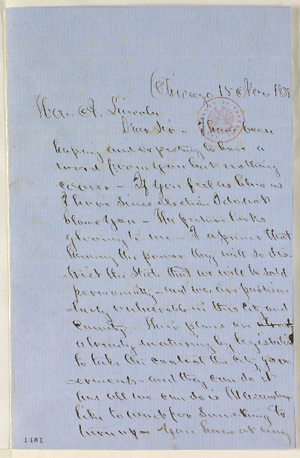 Chicago 15 Nov 1858
Hon A. Lincoln
Dear Sir - I have been
hoping and expecting to have a
word from you but nothing
comes - If you feel as blue as
I have since election I do not
blame you - The future looks
gloomy to me - I assume that
having the power they will so dis-
trict the State that we will be sold
permanently - and we are particu-
larly vulnerable in this City and
County - Their plans are
already maturing by legislation
to take the control the City gov-
ernment - and they can do it
but all we can do is
like to for Something to
turn up - You know at any
1481